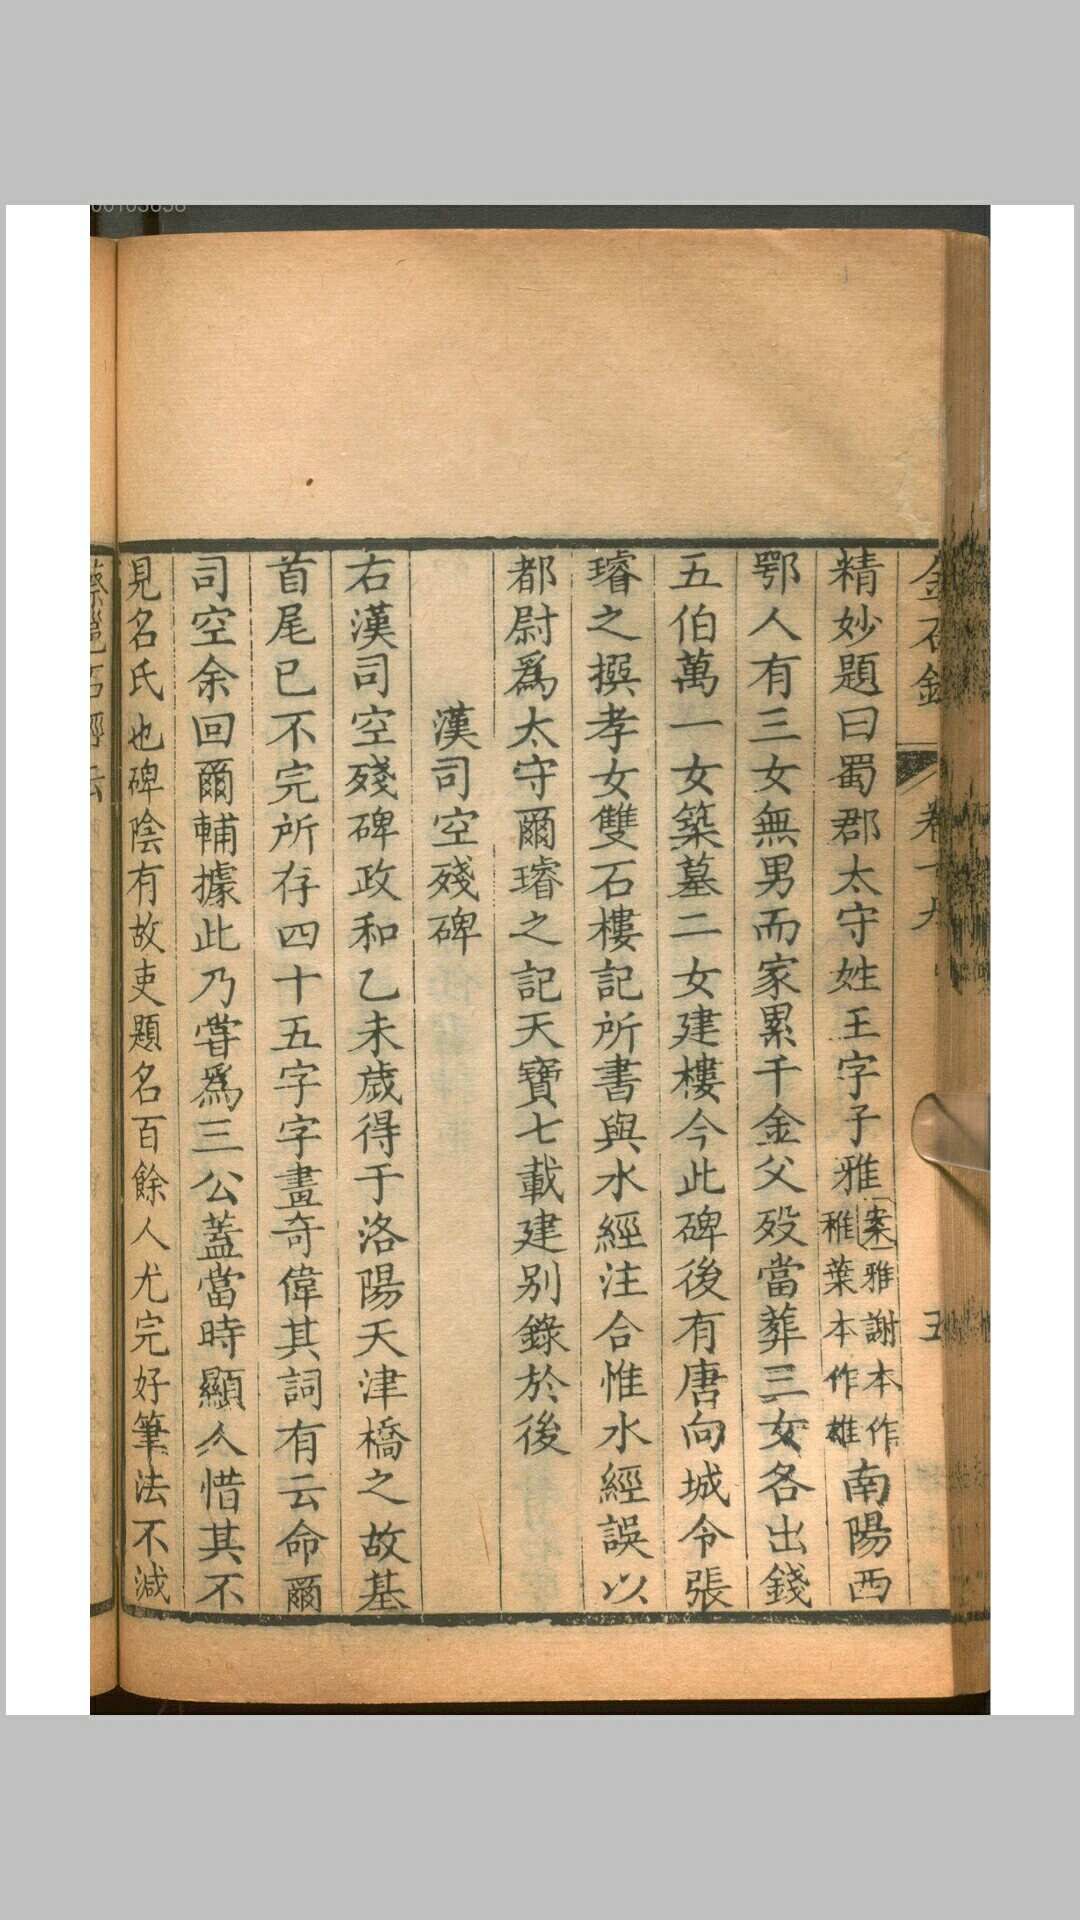 金石錄 卷十九 五
精妙題曰蜀郡太守姓王字子雅案雅謝本作稚葉本作雄南陽西
鄂人有三女無男而家累千金父歿當葬三女各出錢
五伯萬一女築墓二女建樓今此碑後有唐向城令張
璿之撰孝女雙石樓記所書與水經注合惟水經誤以
都尉爲太守爾璿之記天寶七載建别錄於後
漢司空殘碑
右漢司空殘碑政和乙未歲得于洛陽天津橋之故基
首尾已不完所存四十五字字畫奇偉其詞有云命爾
司空余回爾輔據此乃甞爲三公蓋當時顯人惜其不
見名氏也碑陰有故吏題名百餘人尤完好筆法不減
蔡邕石經云